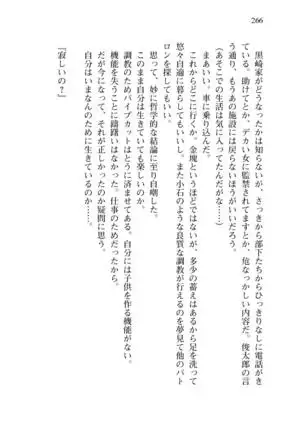 266
黒崎家がどうなったかは知らないが、さっきから部下たちからひっきりなしに電話がき
ている。助けてとか、デカい女に監禁されてますとか、危なっかしい内容だ。俊太郎の言
う通り、もうあの施設には戻らないほうがいいだろう。
（あそこでの生活は気に入ってたんだがな……）
まあいい。車に乗り込んだ。
これからどこに行くか。金塊というほどではないが、多少の蓄えはあるから足を洗って
悠々自適に暮らしてもいいし、また小石のような良質な調教が行えるのを夢見て他のパト
ロンを探してもいい。
思って、妙に哲学的な結論に至り自嘲した。
このまま自分は生きていても楽しいのか、と。
調教のためのパイプカットはとうに済ませてある。自分には子供を作る機能がない。
機能を失うことに躊躇いはなかった。仕事のためだったから。
だが今になって、それが正しかったのか疑問に思う。
自分はいまなんのために生きているのか……。
『寂しいの？』